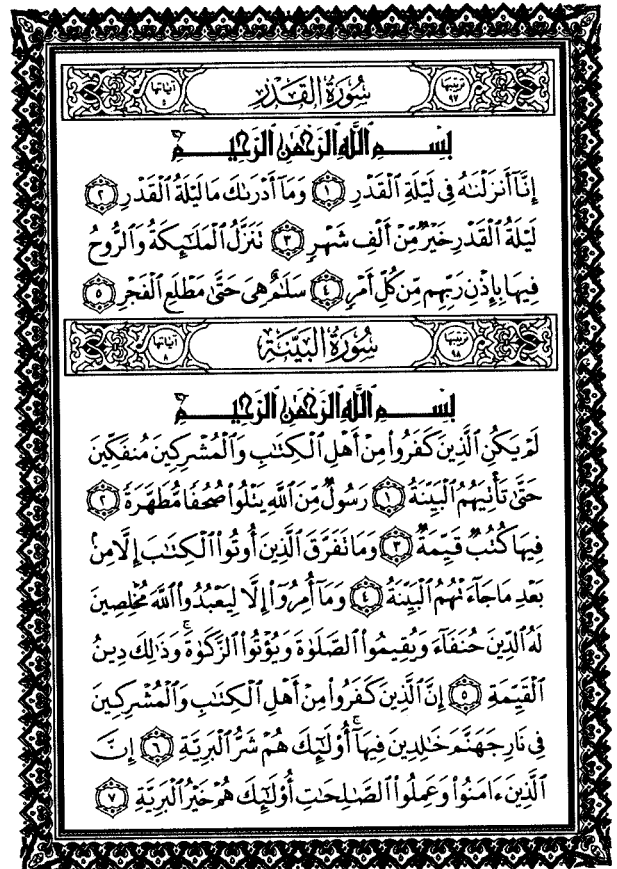 ترتيبها ٩٧ سُورَةُ القَدْرِ آياتها ٥
بِسْمِ ٱللَّهِ ٱلرَّحْمَٰنِ ٱلرَّحِيمِ
إِنَّآ أَنزَلْنَٰهُ فِى لَيْلَةِ ٱلْقَدْرِ ١ وَمَآ أَدْرَىٰكَ مَا لَيْلَةُ ٱلْقَدْرِ ٢
لَيْلَةُ ٱلْقَدْرِ خَيْرٌ مِّنْ أَلْفِ شَهْرٍ ٣ تَنَزَّلُ ٱلْمَلَٰٓئِكَةُ وَٱلرُّوحُ
فِيهَا بِإِذْنِ رَبِّهِم مِّن كُلِّ أَمْرٍ ٤ سَلَٰمٌ هِىَ حَتَّىٰ مَطْلَعِ ٱلْفَجْرِ ٥
ترتيبها ٩٨ سُورَةُ البَيِّنَةِ آياتها ٨
بِسْمِ ٱللَّهِ ٱلرَّحْمَٰنِ ٱلرَّحِيمِ
لَمْ يَكُنِ ٱلَّذِينَ كَفَرُوا۟ مِنْ أَهْلِ ٱلْكِتَٰبِ وَٱلْمُشْرِكِينَ مُنفَكِّينَ
حَتَّىٰ تَأْتِيَهُمُ ٱلْبَيِّنَةُ ١ رَسُولٌ مِّنَ ٱللَّهِ يَتْلُوا۟ صُحُفًا مُّطَهَّرَةً ٢
فِيهَا كُتُبٌ قَيِّمَةٌ ٣ وَمَا تَفَرَّقَ ٱلَّذِينَ أُوتُوا۟ ٱلْكِتَٰبَ إِلَّا مِنۢ
بَعْدِ مَا جَآءَتْهُمُ ٱلْبَيِّنَةُ ٤ وَمَآ أُمِرُوٓا۟ إِلَّا لِيَعْبُدُوا۟ ٱللَّهَ مُخْلِصِينَ
لَهُ ٱلدِّينَ حُنَفَآءَ وَيُقِيمُوا۟ ٱلصَّلَوٰةَ وَيُؤْتُوا۟ ٱلزَّكَوٰةَ ۚ وَذَٰلِكَ دِينُ
ٱلْقَيِّمَةِ ٥ إِنَّ ٱلَّذِينَ كَفَرُوا۟ مِنْ أَهْلِ ٱلْكِتَٰبِ وَٱلْمُشْرِكِينَ
فِى نَارِ جَهَنَّمَ خَٰلِدِينَ فِيهَآ ۚ أُو۟لَٰٓئِكَ هُمْ شَرُّ ٱلْبَرِيَّةِ ٦ إِنَّ
ٱلَّذِينَ ءَامَنُوا۟ وَعَمِلُوا۟ ٱلصَّٰلِحَٰتِ أُو۟لَٰٓئِكَ هُمْ خَيْرُ ٱلْبَرِيَّةِ ٧